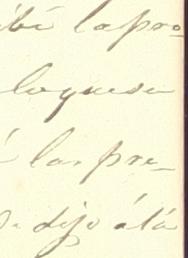 ibi la pro
loquese
á las pre-
o. dijo á la